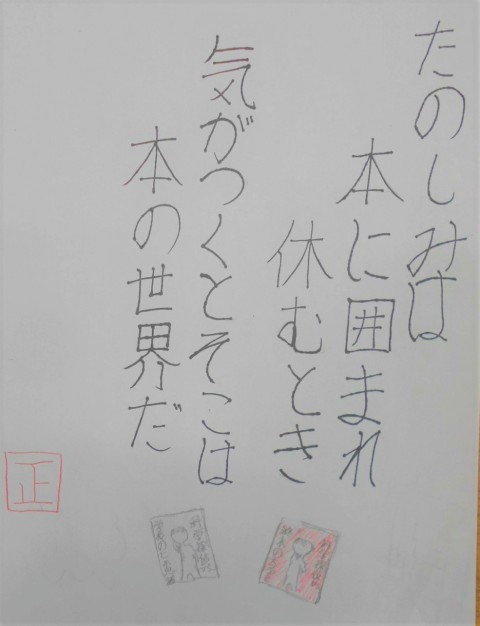 たのしみは
本に囲まれ
休むとき
気がつくとそこは
本の世界だ
正